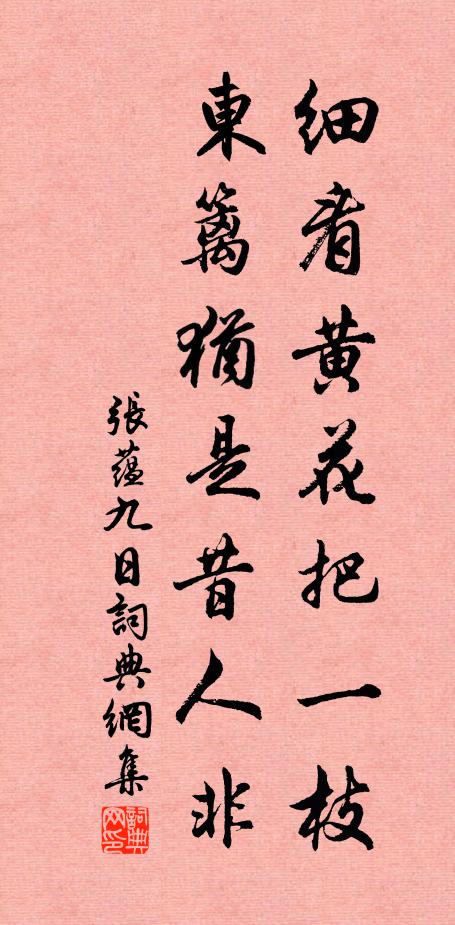 細看黄花把一枝
東籬猶是昔人非
張蘊九日詞典網集
詞典
网印